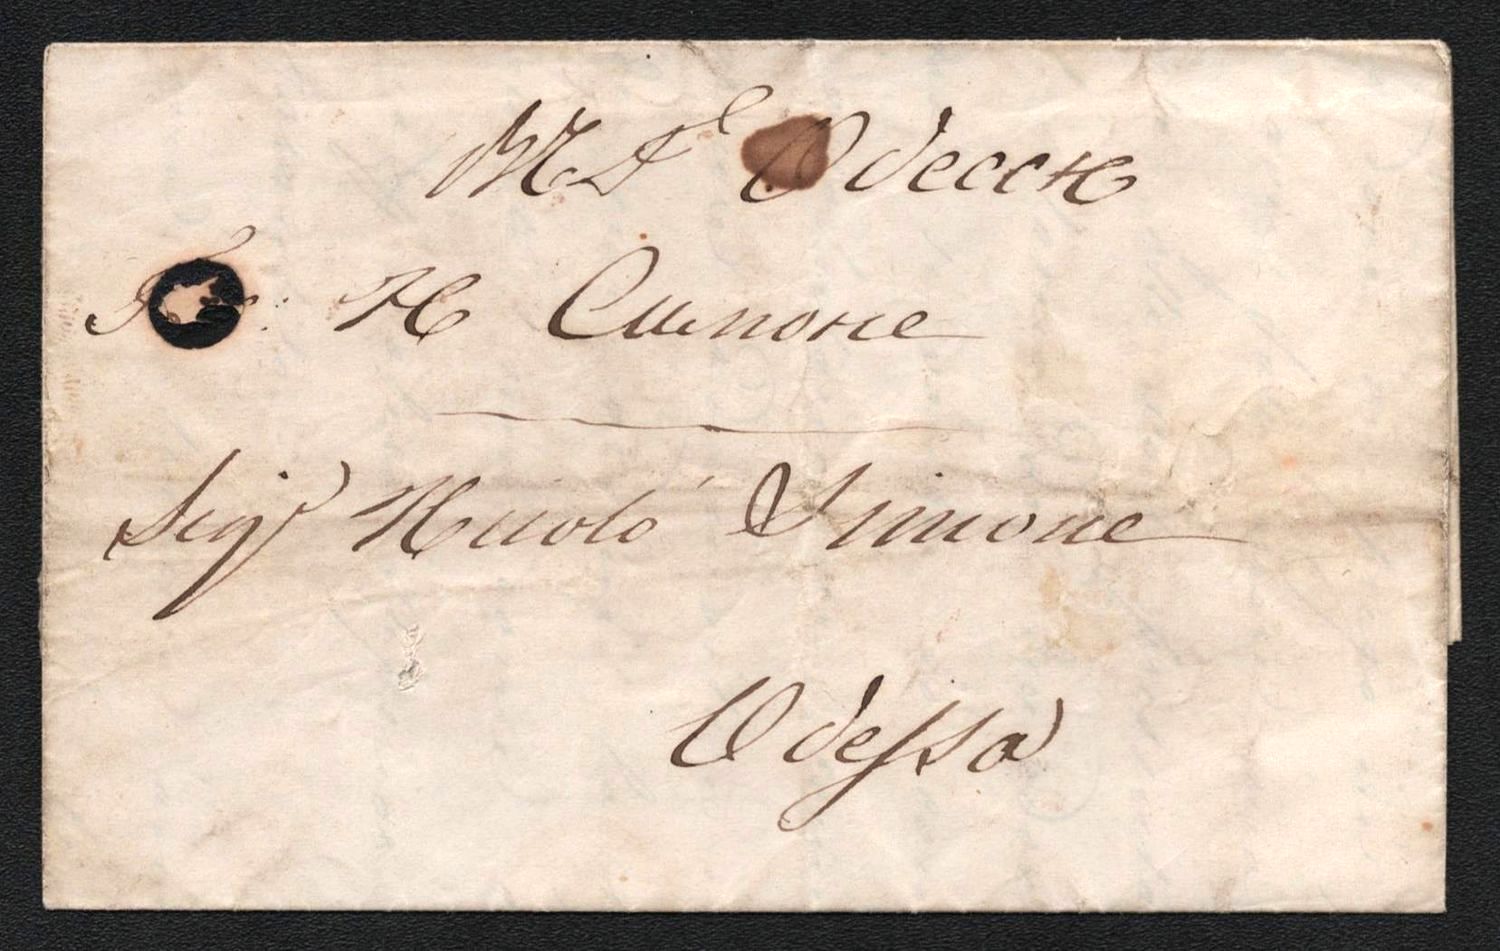 Одессѣ
Н Симоне
Sigr Nicolò Simone
Odessa